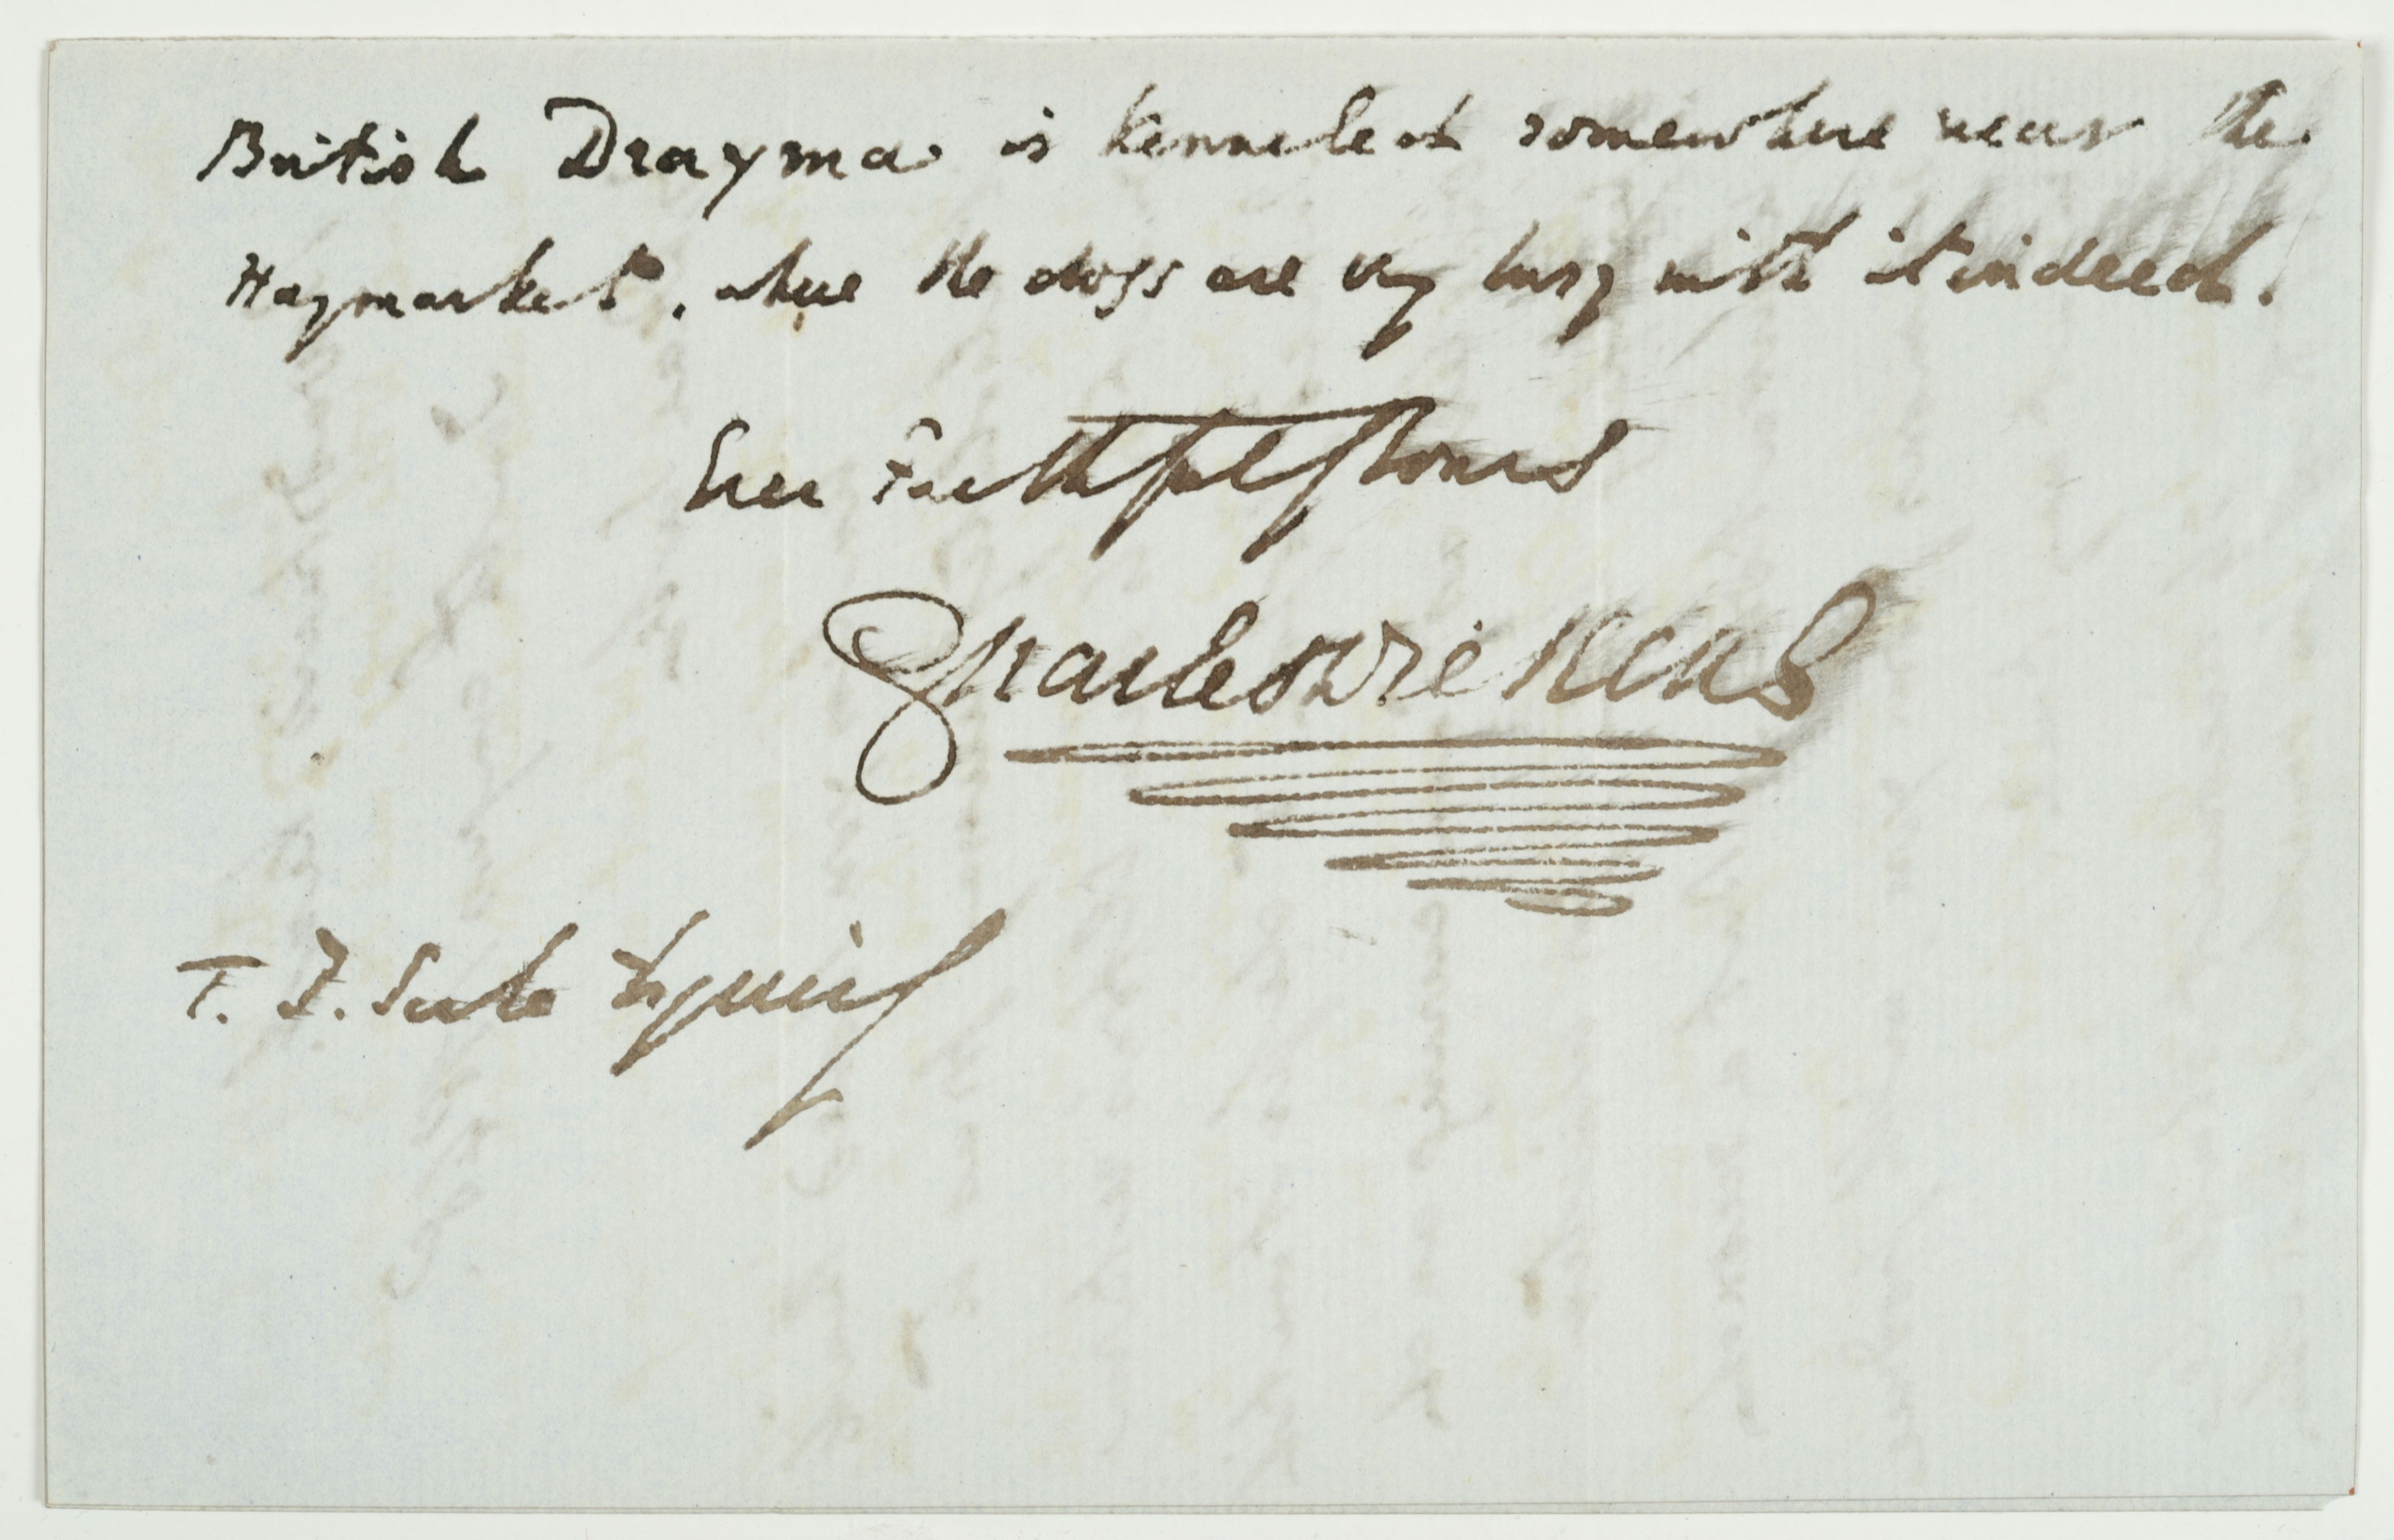 British Drayma is kenneled somewhere near the
Haymarket, where the dogs are very busy with it indeed.
Ever Faithfully Yours
Charles Dickens
T. J. Serle Esquire